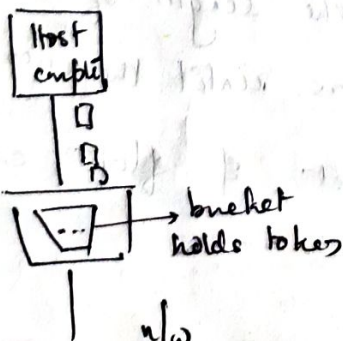 Host
bucket
holds token
n/w